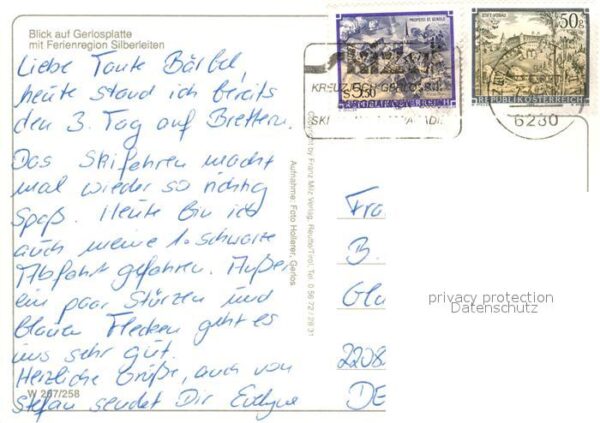 Blick auf Gerlosplatte
mit Ferienregion Silberleiten
Liebe Tante Bärbel,
heute stand ich bereits
den 3. Tag auf Brettern.
Das Skifahren macht
mal wieder so richtig
Spaß. Heute bin ich
auch meine 1. schwarze
Abfahrt gefahren. Außer
ein paar Stürzen und
blauen Flecken geht es
uns sehr gut.
Herzliche Grüße, auch von
Stefan sendet Dir Evelyne
W 267/258
Aufnahme: Foto Hollerer, Gerlos
Copyright by Franz Milz Verlag, Reutte/Tirol, Tel. 0 56 72 / 28 31
PROPSTEI ST. GEROLD
S 5.50
REPUBLIK ÖSTERREICH
STIFT VORAU
50g
REPUBLIK ÖSTERREICH
6280
Fra
B.
Gla
2208
DE
privacy protection
Datenschutz